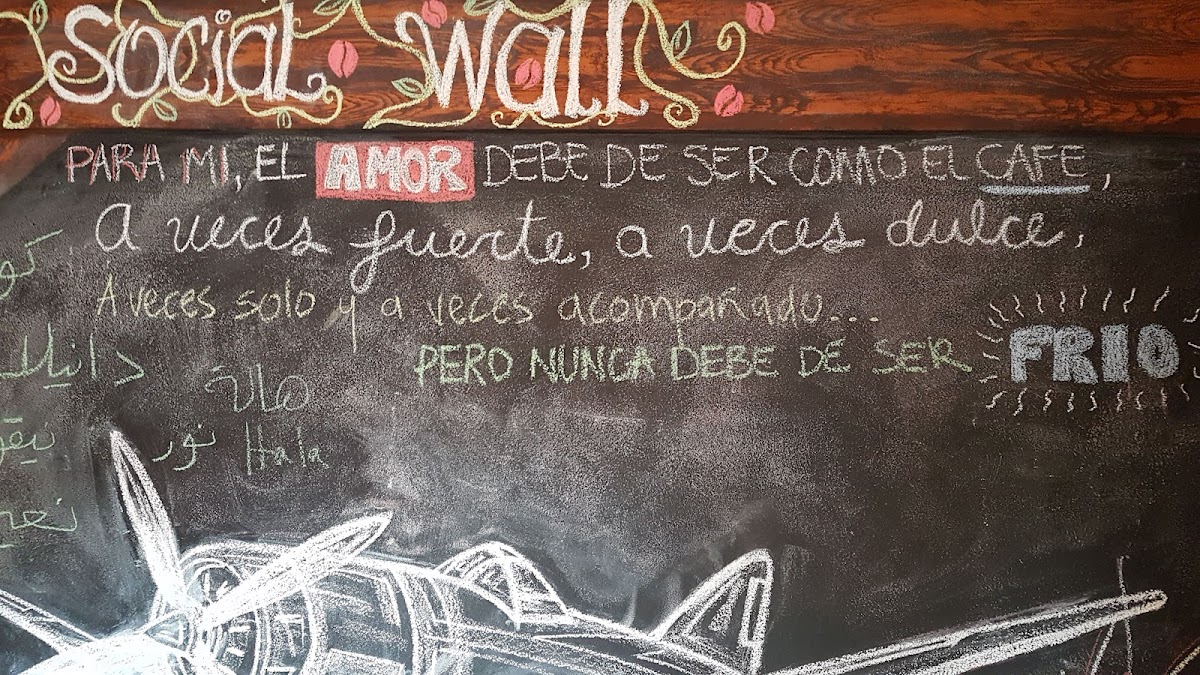 Social Wall
PARA MI, EL AMOR DEBE DE SER COMO EL CAFE,
A veces fuerte, a veces dulce,
A veces solo y a veces acompañado...
PERO NUNCA DEBE DE SER FRIO
هالة
نور
Hala